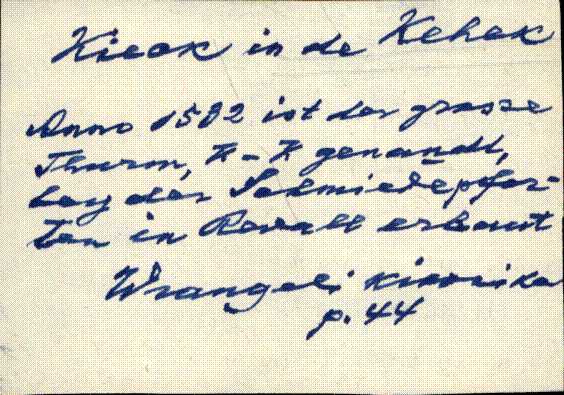 Kieck in de Kehek
Anno 1582 ist der grosse
Thurm, K-K genandt,
bey der Schmiedepfor-
ten in Revall erbaut
Wrangeli kroonika
p. 44